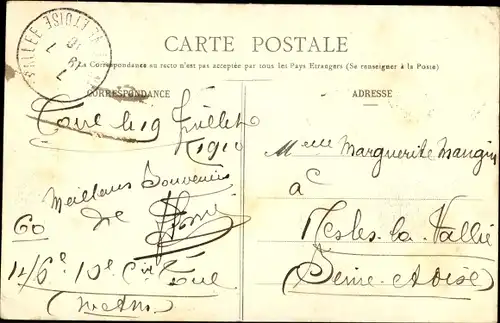 CARTE POSTALE
La Correspondance au recto n'est pas acceptée par tous les Pays Etrangers (Se renseigner à la Poste)
CORRESPONDANCE
ADRESSE
Toul le 19 Juillet
1910
Meilleurs Souvenirs
de
60
146e 10e Cie Toul
Melle Marguerite Mangin
a
Nesles-la-Vallée
(Seine-et-Oise)